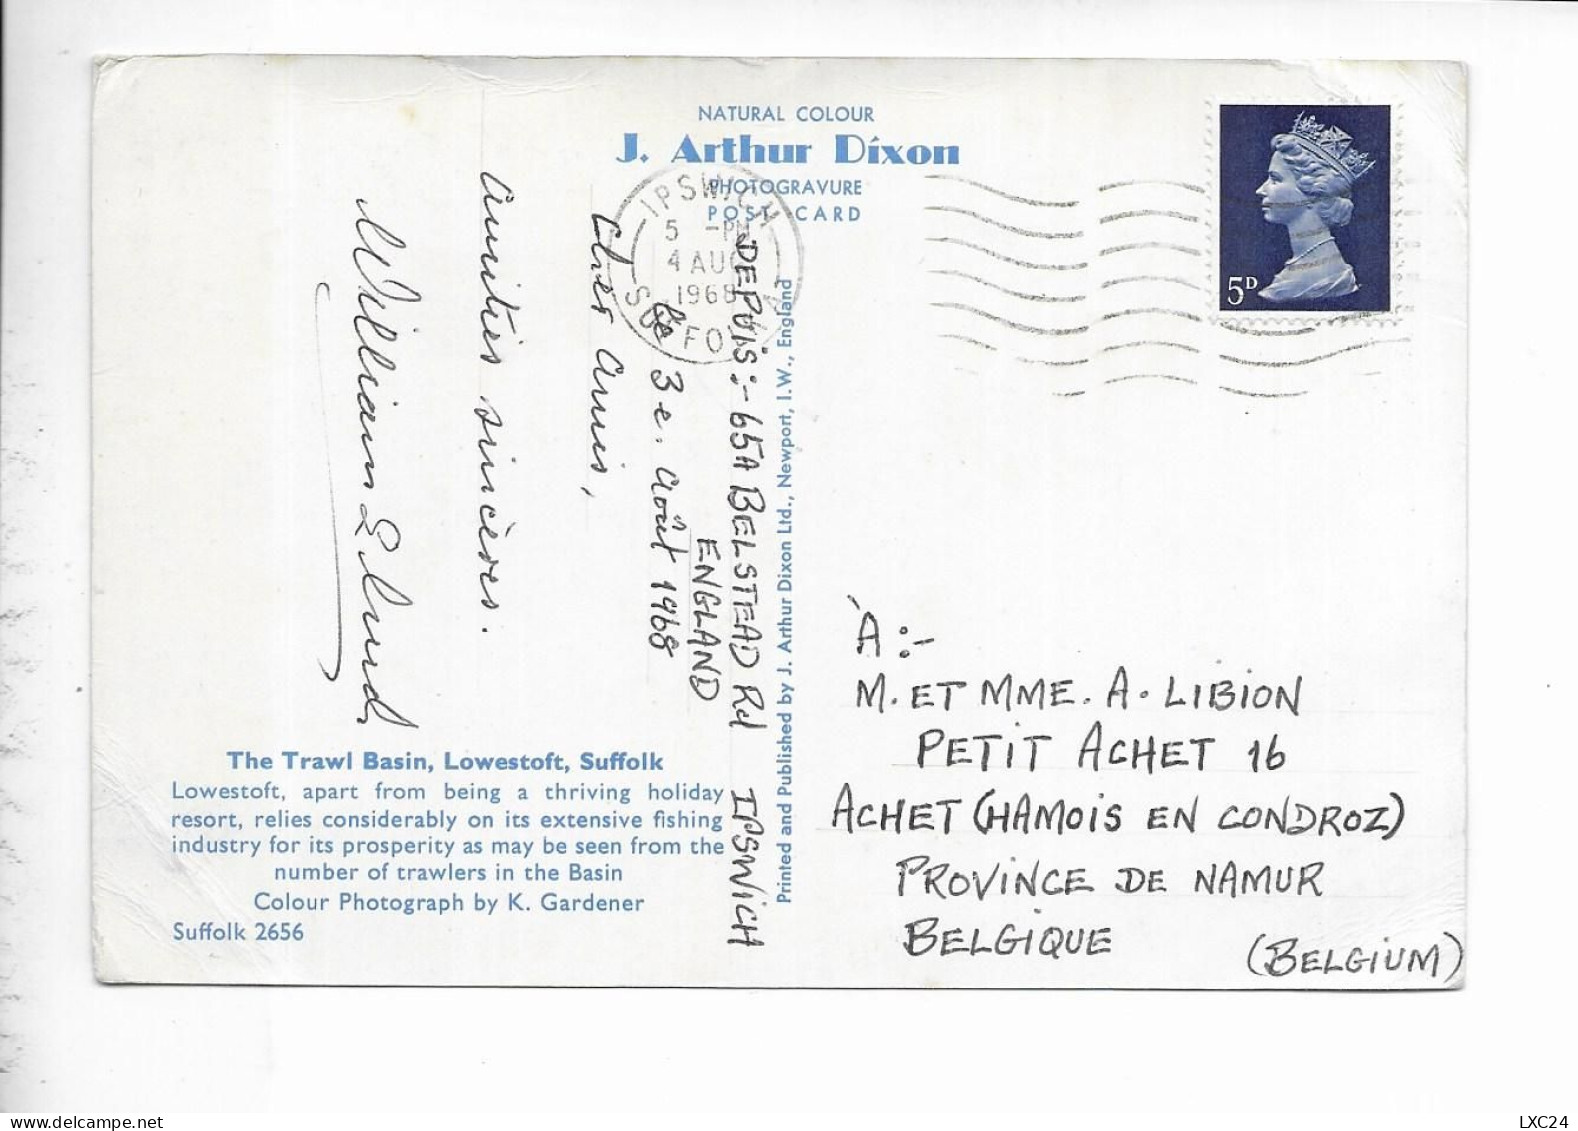 NATURAL COLOUR
J. Arthur Dixon
PHOTOGRAVURE
POST CARD
IPSWICH
5 -PM
4 AUG
1968
SUFFOLK
5D
DEPUIS:- 65A BELSTEAD Rd IPSWICH
ENGLAND
Le 3e. août 1968
Cher amis,
amitiés sincères.
William E.
Printed and Published by J. Arthur Dixon Ltd., Newport, I.W., England
The Trawl Basin, Lowestoft, Suffolk
Lowestoft, apart from being a thriving holiday
resort, relies considerably on its extensive fishing
industry for its prosperity as may be seen from the
number of trawlers in the Basin
Colour Photograph by K. Gardener
Suffolk 2656
À:-
M. ET MME. A. LIBION
PETIT ACHET 16
ACHET (HAMOIS EN CONDROZ)
PROVINCE DE NAMUR
BELGIQUE (BELGIUM)
LXC24